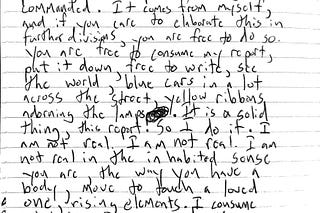 commanded. It comes from myself,
and if you care to elaborate this in
further divisions, you are free to do so.
you are free to consume my report,
put it down, free to write, see
the world, blue cars in a lot
across the street, yellow ribbons
adorning the lamps. It is a solid
thing, this report. So I do it. I
am not real. I am not real. I am
not real in the inhabited sense
you are, the way you have a
body, move to touch a loved
one, rising elements. I consume